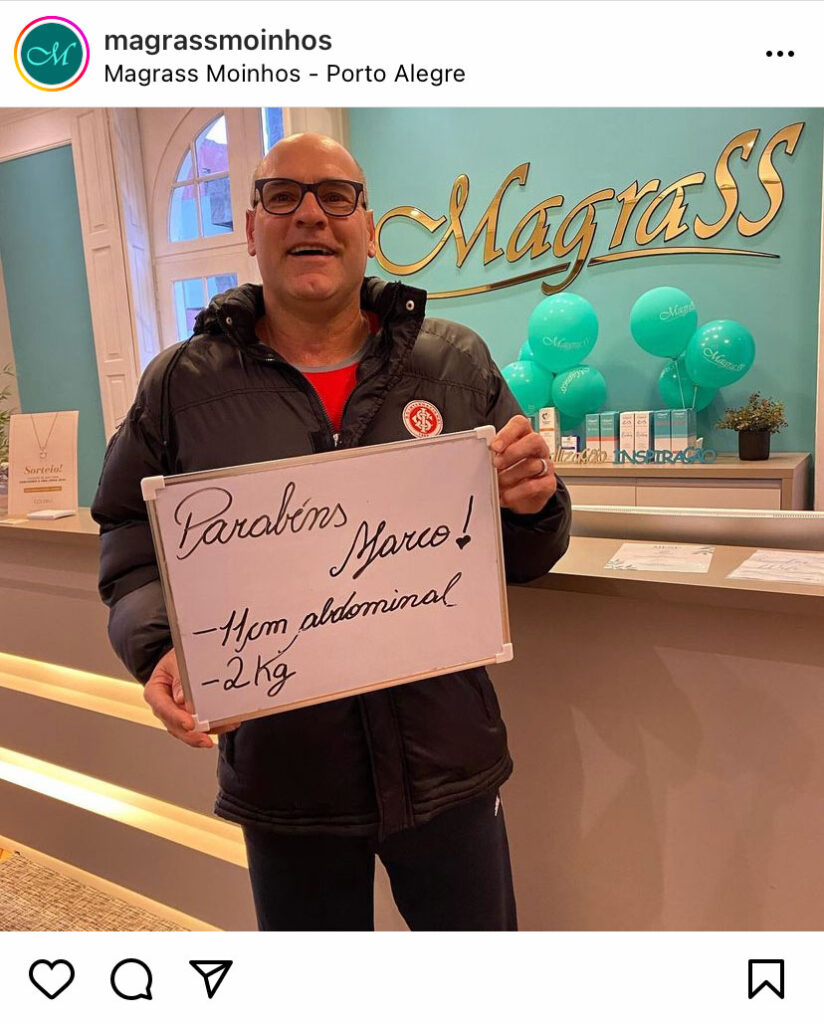 magrassmoinhos
Magrass Moinhos - Porto Alegre
MagraSS
Magrass
Magrass
Magrass
Magrass
Sorteio!
INSPIRAÇÃO
Parabéns
Marco!
-11cm abdominal
-2Kg